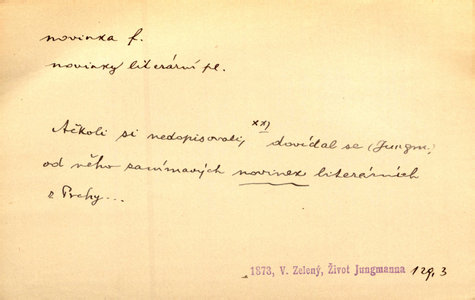 novinka f.
novinky literární pl.
Ačkoli si nedopisovali, xx) dovídal se (Jungm.)
od něho zanímavých novinek literárních
z Prahy...
1873, V. Zelený, Život Jungmanna 129, 3